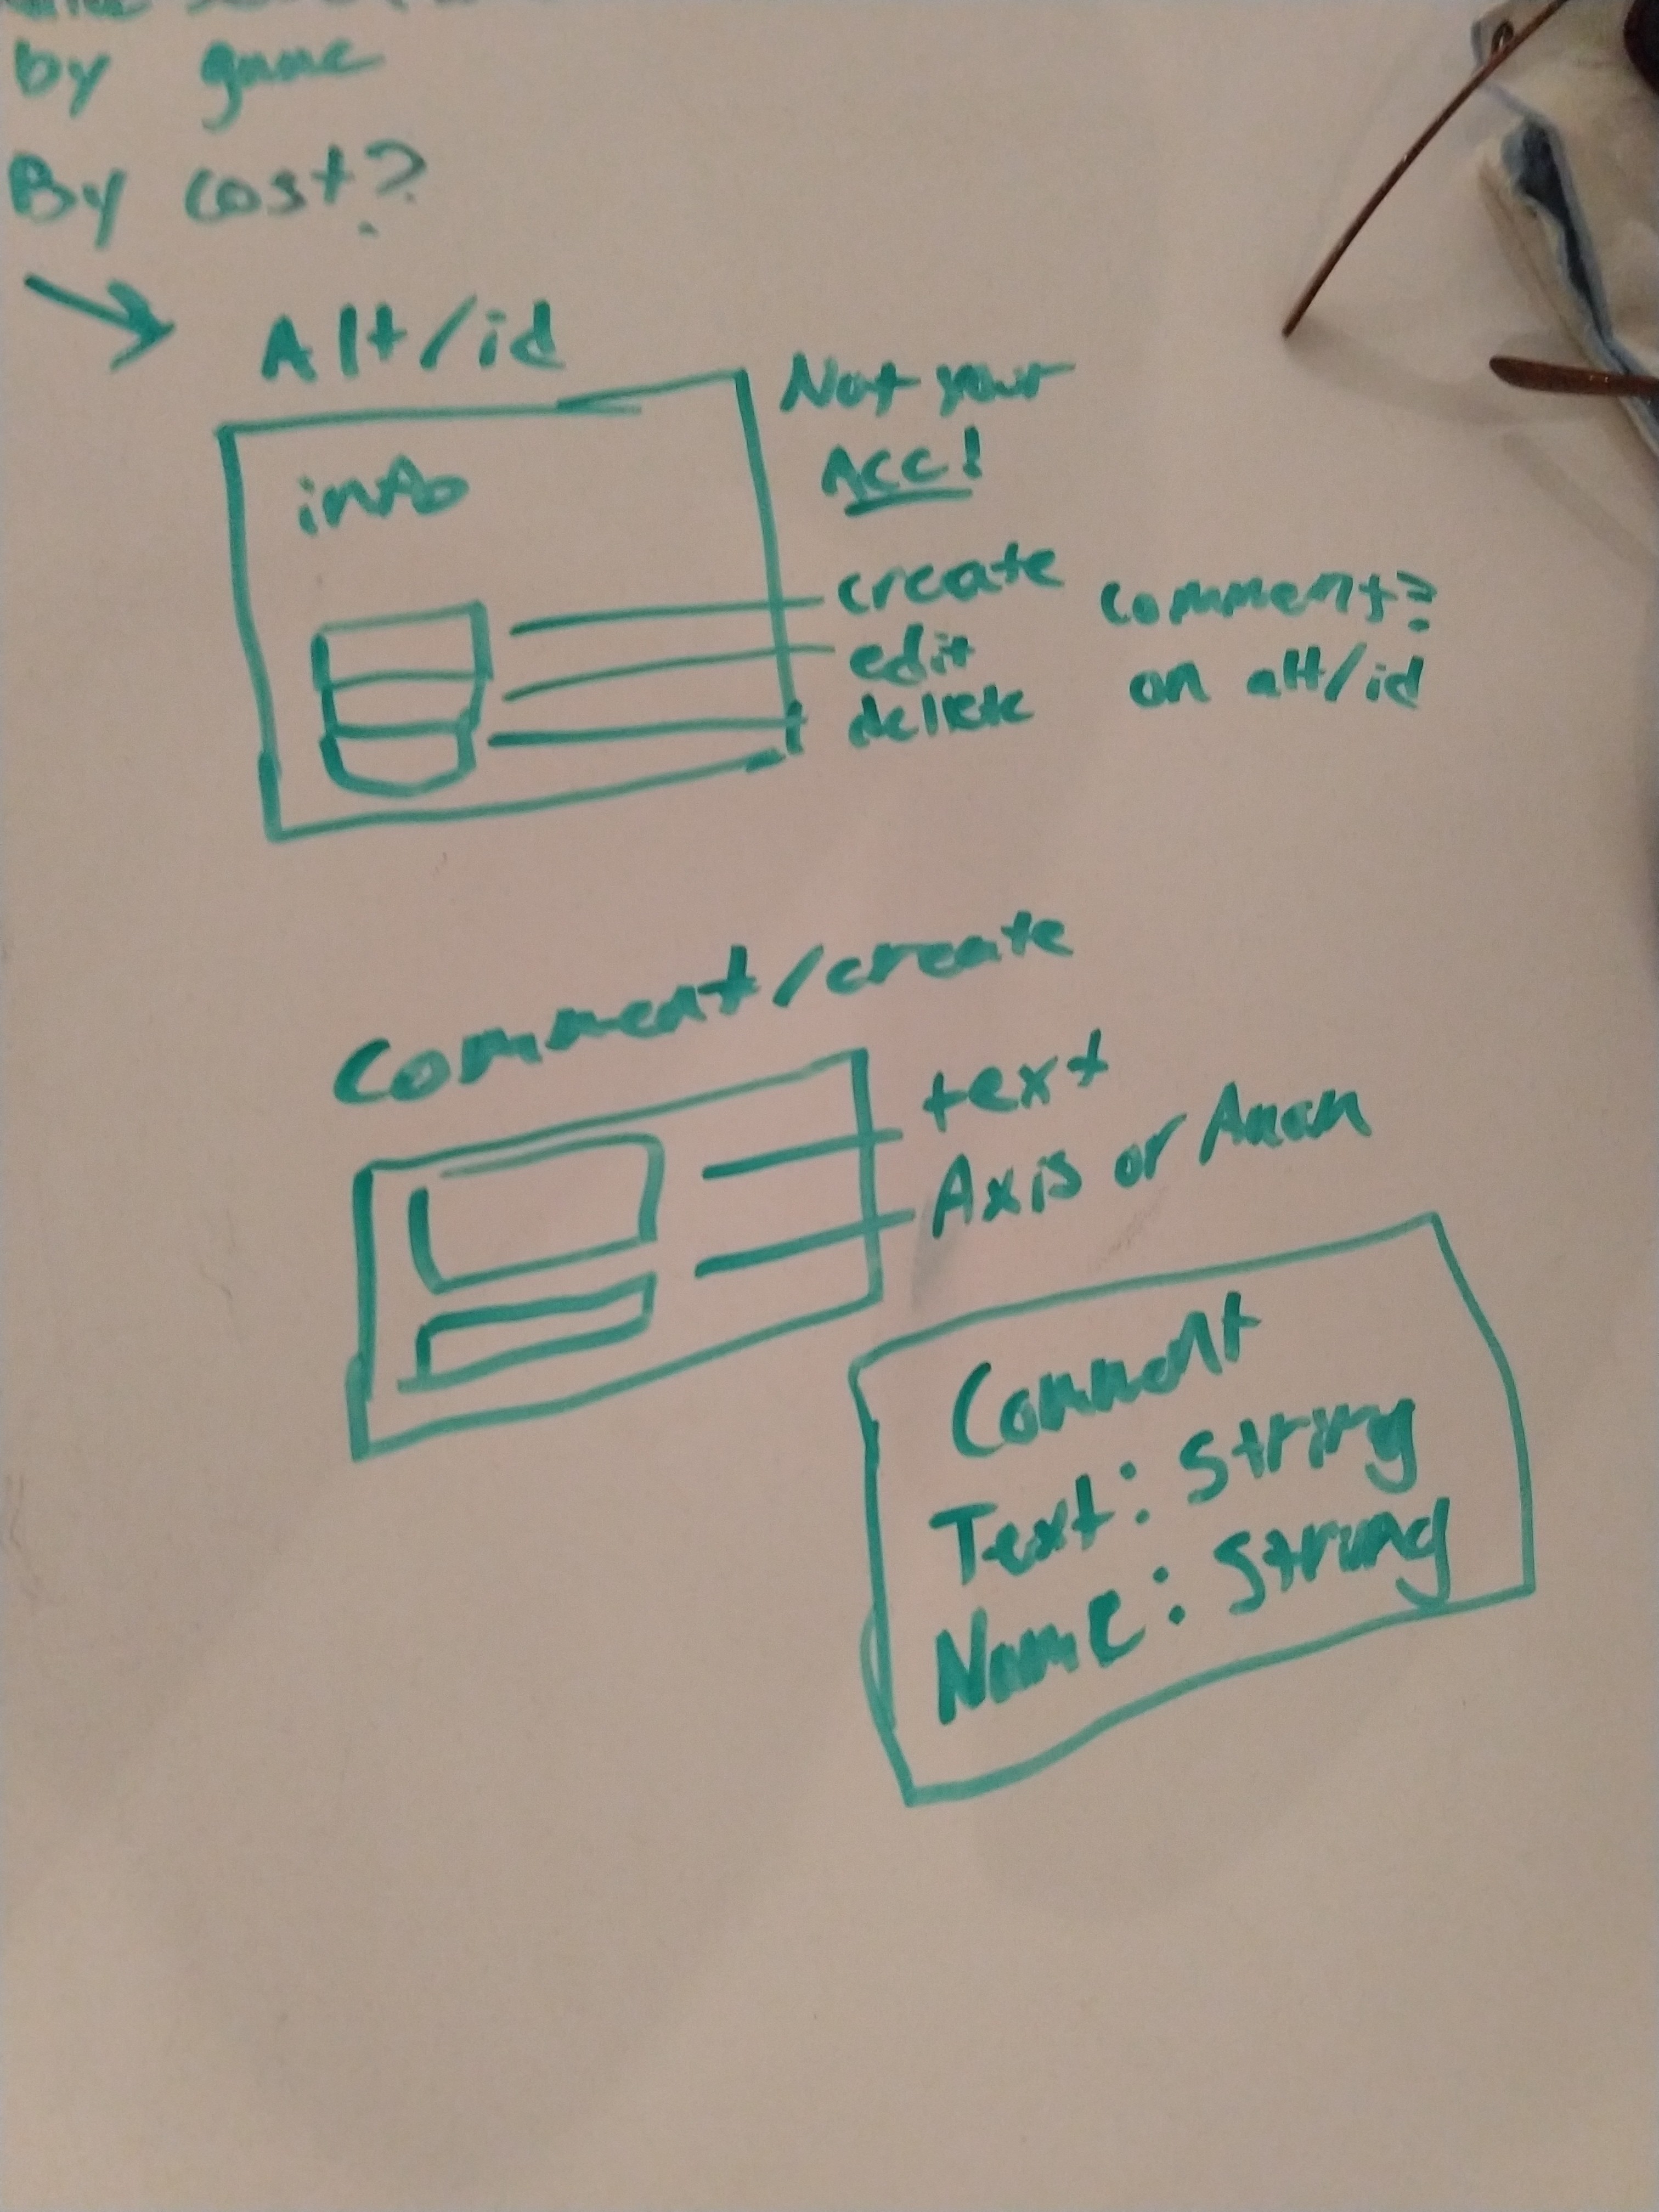 by game
By cost?
Alt/id
Not your
Acc!
info
create
edit
delete
comment?
on alt/id
Comment/create
text
Axis or Anon
Comment
Text: String
Name: String